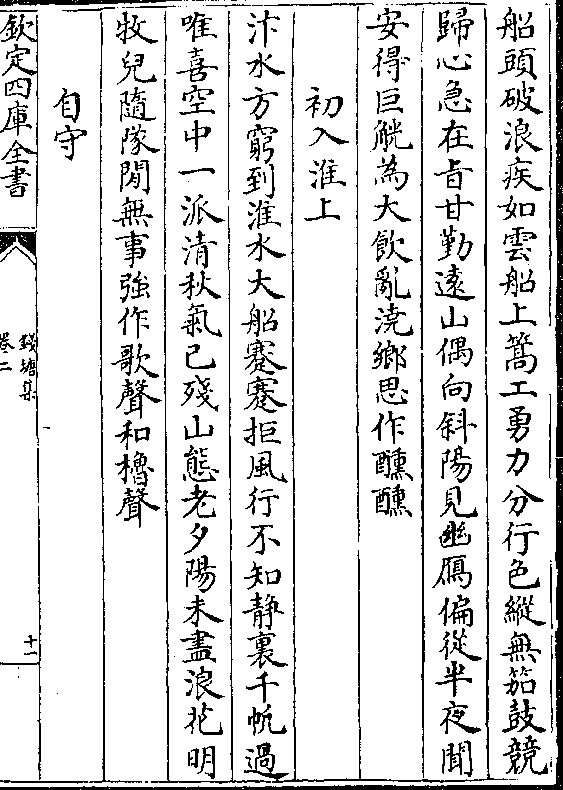 船頭破浪疾如雲船上篙工勇力分行色縱無笳鼓競
歸心急在旨甘勤遠山偶向斜陽見幽鴈偏從半夜聞
安得巨觥為大飲亂澆鄉思作醺醺
初入淮上
汴水方窮到淮水大船蹇蹇拒風行不知静裏千帆過
唯喜空中一派清秋氣已殘山態老夕陽未盡浪花明
牧兒隨隊閒無事強作歌聲和櫓聲
自守
欽定四庫全書
錢塘集
卷二
十一